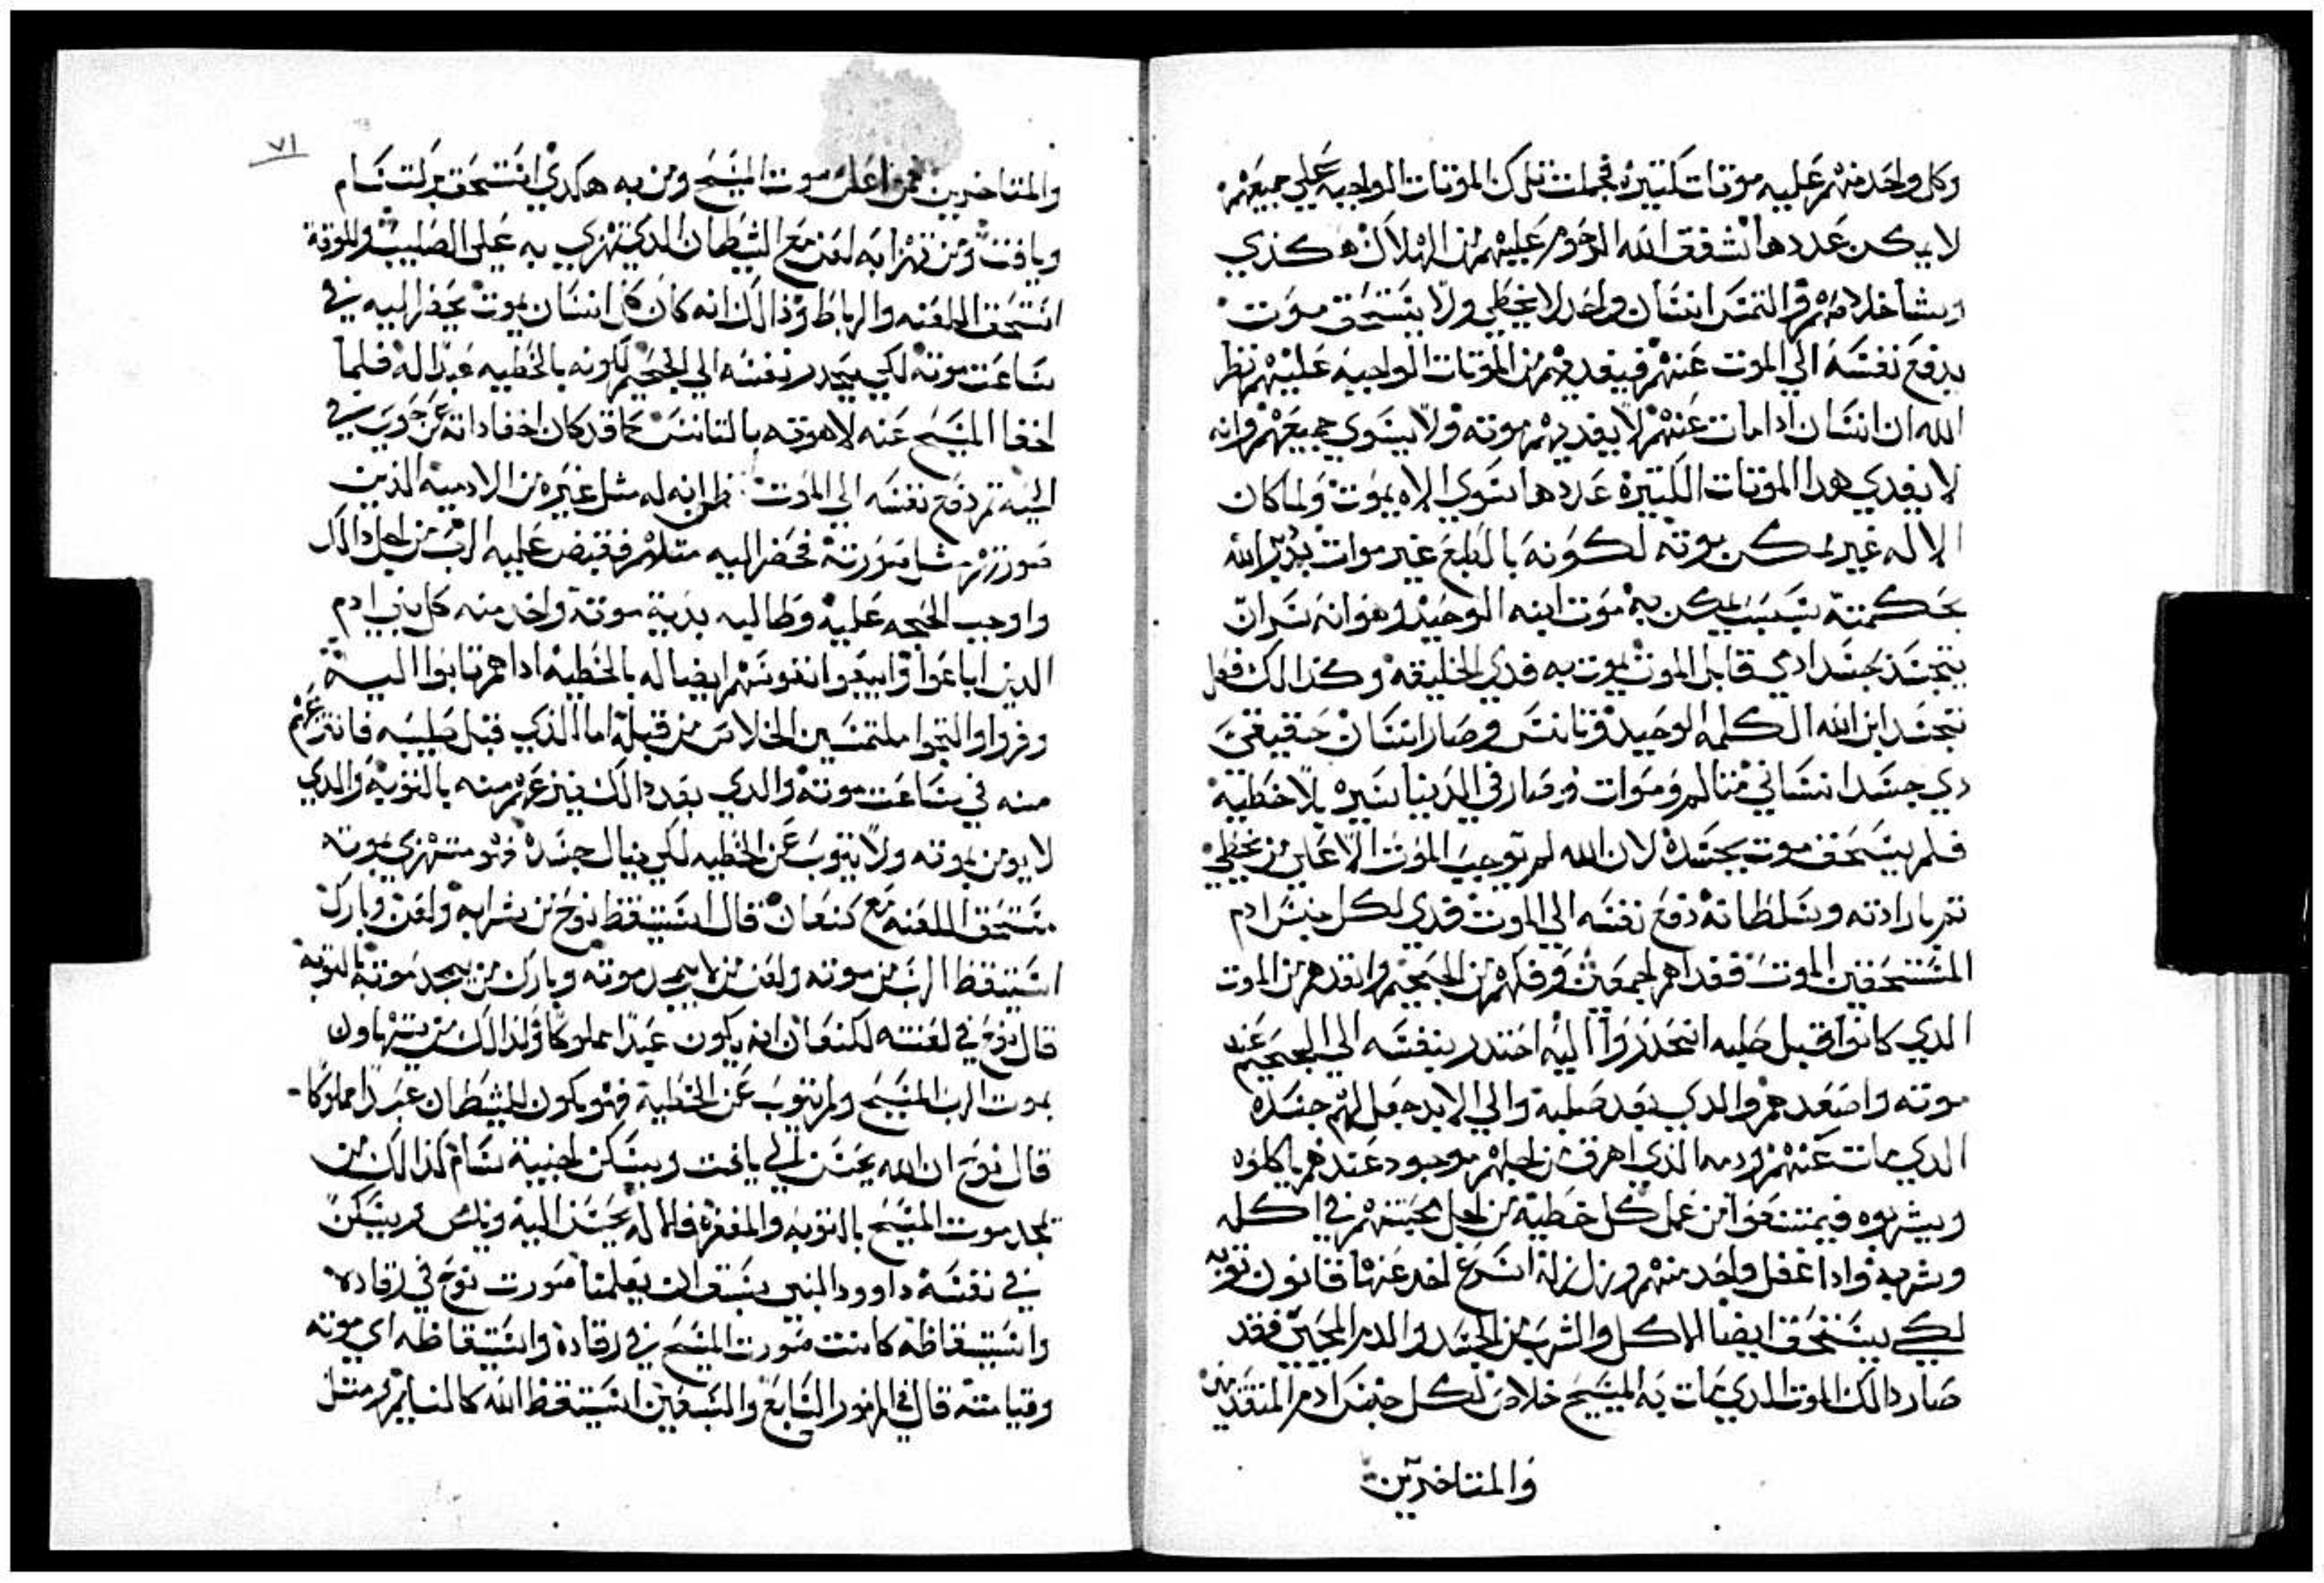 وكل واحد منهم عليه موتات كتيره فجملت تلك الموتات الواجبه علي جميعهم
لا يمكن عددها اشفق الله الرحوم عليهم من الهلاك هكذي
وبشا خلاصهم والتمس انسان واحد لا يخطي ولا يستحق موت
يدفع نفسه الي الموت عنهم فيفديهم من الموتات الواجبه عليهم نظر
الله ان انسان ادا مات عنهم لا يفديهم موته ولا يسوي جميعهم وانه
لا يفدي هدا الموتات الكتيرة عددها سوي الاه يموت ولما كان
الاله غير ممكن موته لكونه بالطبع غير موات بدير الله
بحكمته بسبب يمكن به موت ابنه الوحيد وهو انه تران
يتجسد بجسد ادمي قابل الموت يموت به فدي الخليقه وكذالك فعل
تجسد ابن الله الكلمه الوحيد وتانس وصار انسان حقيقي
دي جسد انساني متالم وموات وصار في الدنيا بسيره بلا خطية
فلم يستحق موت بجسده لان الله لم يوجب الموت الا علي من يخطي
تم بارادته وسلطانه دفع نفسه الي الموت فدي لكل جنس ادم
المستحقين الموت ففداهم اجمعين وفكهم من الجحيم وانقدهم من الموت
الدي كانوا قبل صلبه انحدروا اليه احتدر بنفسه الي الجحيم عند
موته واصعدهم والدي بعد صلبه والي الابد جعل لهم جسده
الدي مات عنهم ودمه الذي اهرق من اجلهم موجود عندهم ياكلوه
ويشربوه فيمتنعوا من عمل كل خطية من اجل محبتهم في اكله
وشربه وادا غفل واحد منهم وزل زلة اسرع اخد عنها قانون توبه
لكي يستحق ايضا الاكل والشرب من الجسد والدم المحيي فقد
صار دالك الموت الدي مات به المسيح خلاص لكل جنس ادم المتقدمين
والمتاخرين
٧١
والمتاخرين فمن اعلن موت المسيح ومن به هكدي استحق بركت سام
ويافت ومن تهزا به لعن مع الشيطان الدي تهزي به علي الصليب والموتة
استحق اللعنه والرباط وذالك انه كان كل انسان يموت يحضر اليه في
ساعت موته لكي يحدر نفسه الي الجحيم لكونه بالخطيه عبدا له فلما
اخفا المسيح عنه لاهوته بالتانس كما قد كان اخفا داته عن حوي في
الحيه تم دفع نفسه الي الموت ظن انه له مثل غيره من الادميه الذين
صورتهم مثل صورته فحضر اليه متلهم فقبض عليه الرب من اجل دالك
واوجب الحجه عليه وطالبه بدية موته واخد منه كل بني ادم
الدين اباعوا وابيعوا نفوسهم ايضا له بالخطيه ادا هم تابوا اليه
وفروا والتجوا ملتمسين الخلاص من قبله اما الذي قبل صلبه فانتزعهم
منه في ساعت موته والدي بعد دالك فينزعهم منه بالتوبة والدي
لا يومن بموته ولا يتوب عن الخطيه لكي ينال جسده فهو متهزي بموته
مستحق اللعنه مع كنعان قال استيقظ نوح من شرابه ولعن وبارك
استيقظ الرب من موته ولعن من لا يمجد موته وبارك من يمجد موته بالتوبة
قال نوح في لعنته لكنعان انه يكون عبدا مملوكا ولذالك من يتهاون
بموت الرب المسيح ولم يتوب عن الخطية فهو يكون للشيطان عبدا مملوكا
قال نوح ان الله يحسن الي يافت ويسكن اخبية سام كذالك من
يمجد موت المسيح بالتوبه والمغفرة فالاله يحسن اليه ويسكن
في نفسه داوود النبي سبق ان يعلمنا صورت نوح في رقاده
واستيقاظه كانت صورت المسيح في رقاده واستيقاظه اي موته
وقيامته قال في المزمور السابع والسبعين استيقظ الله كالنايم ومتل